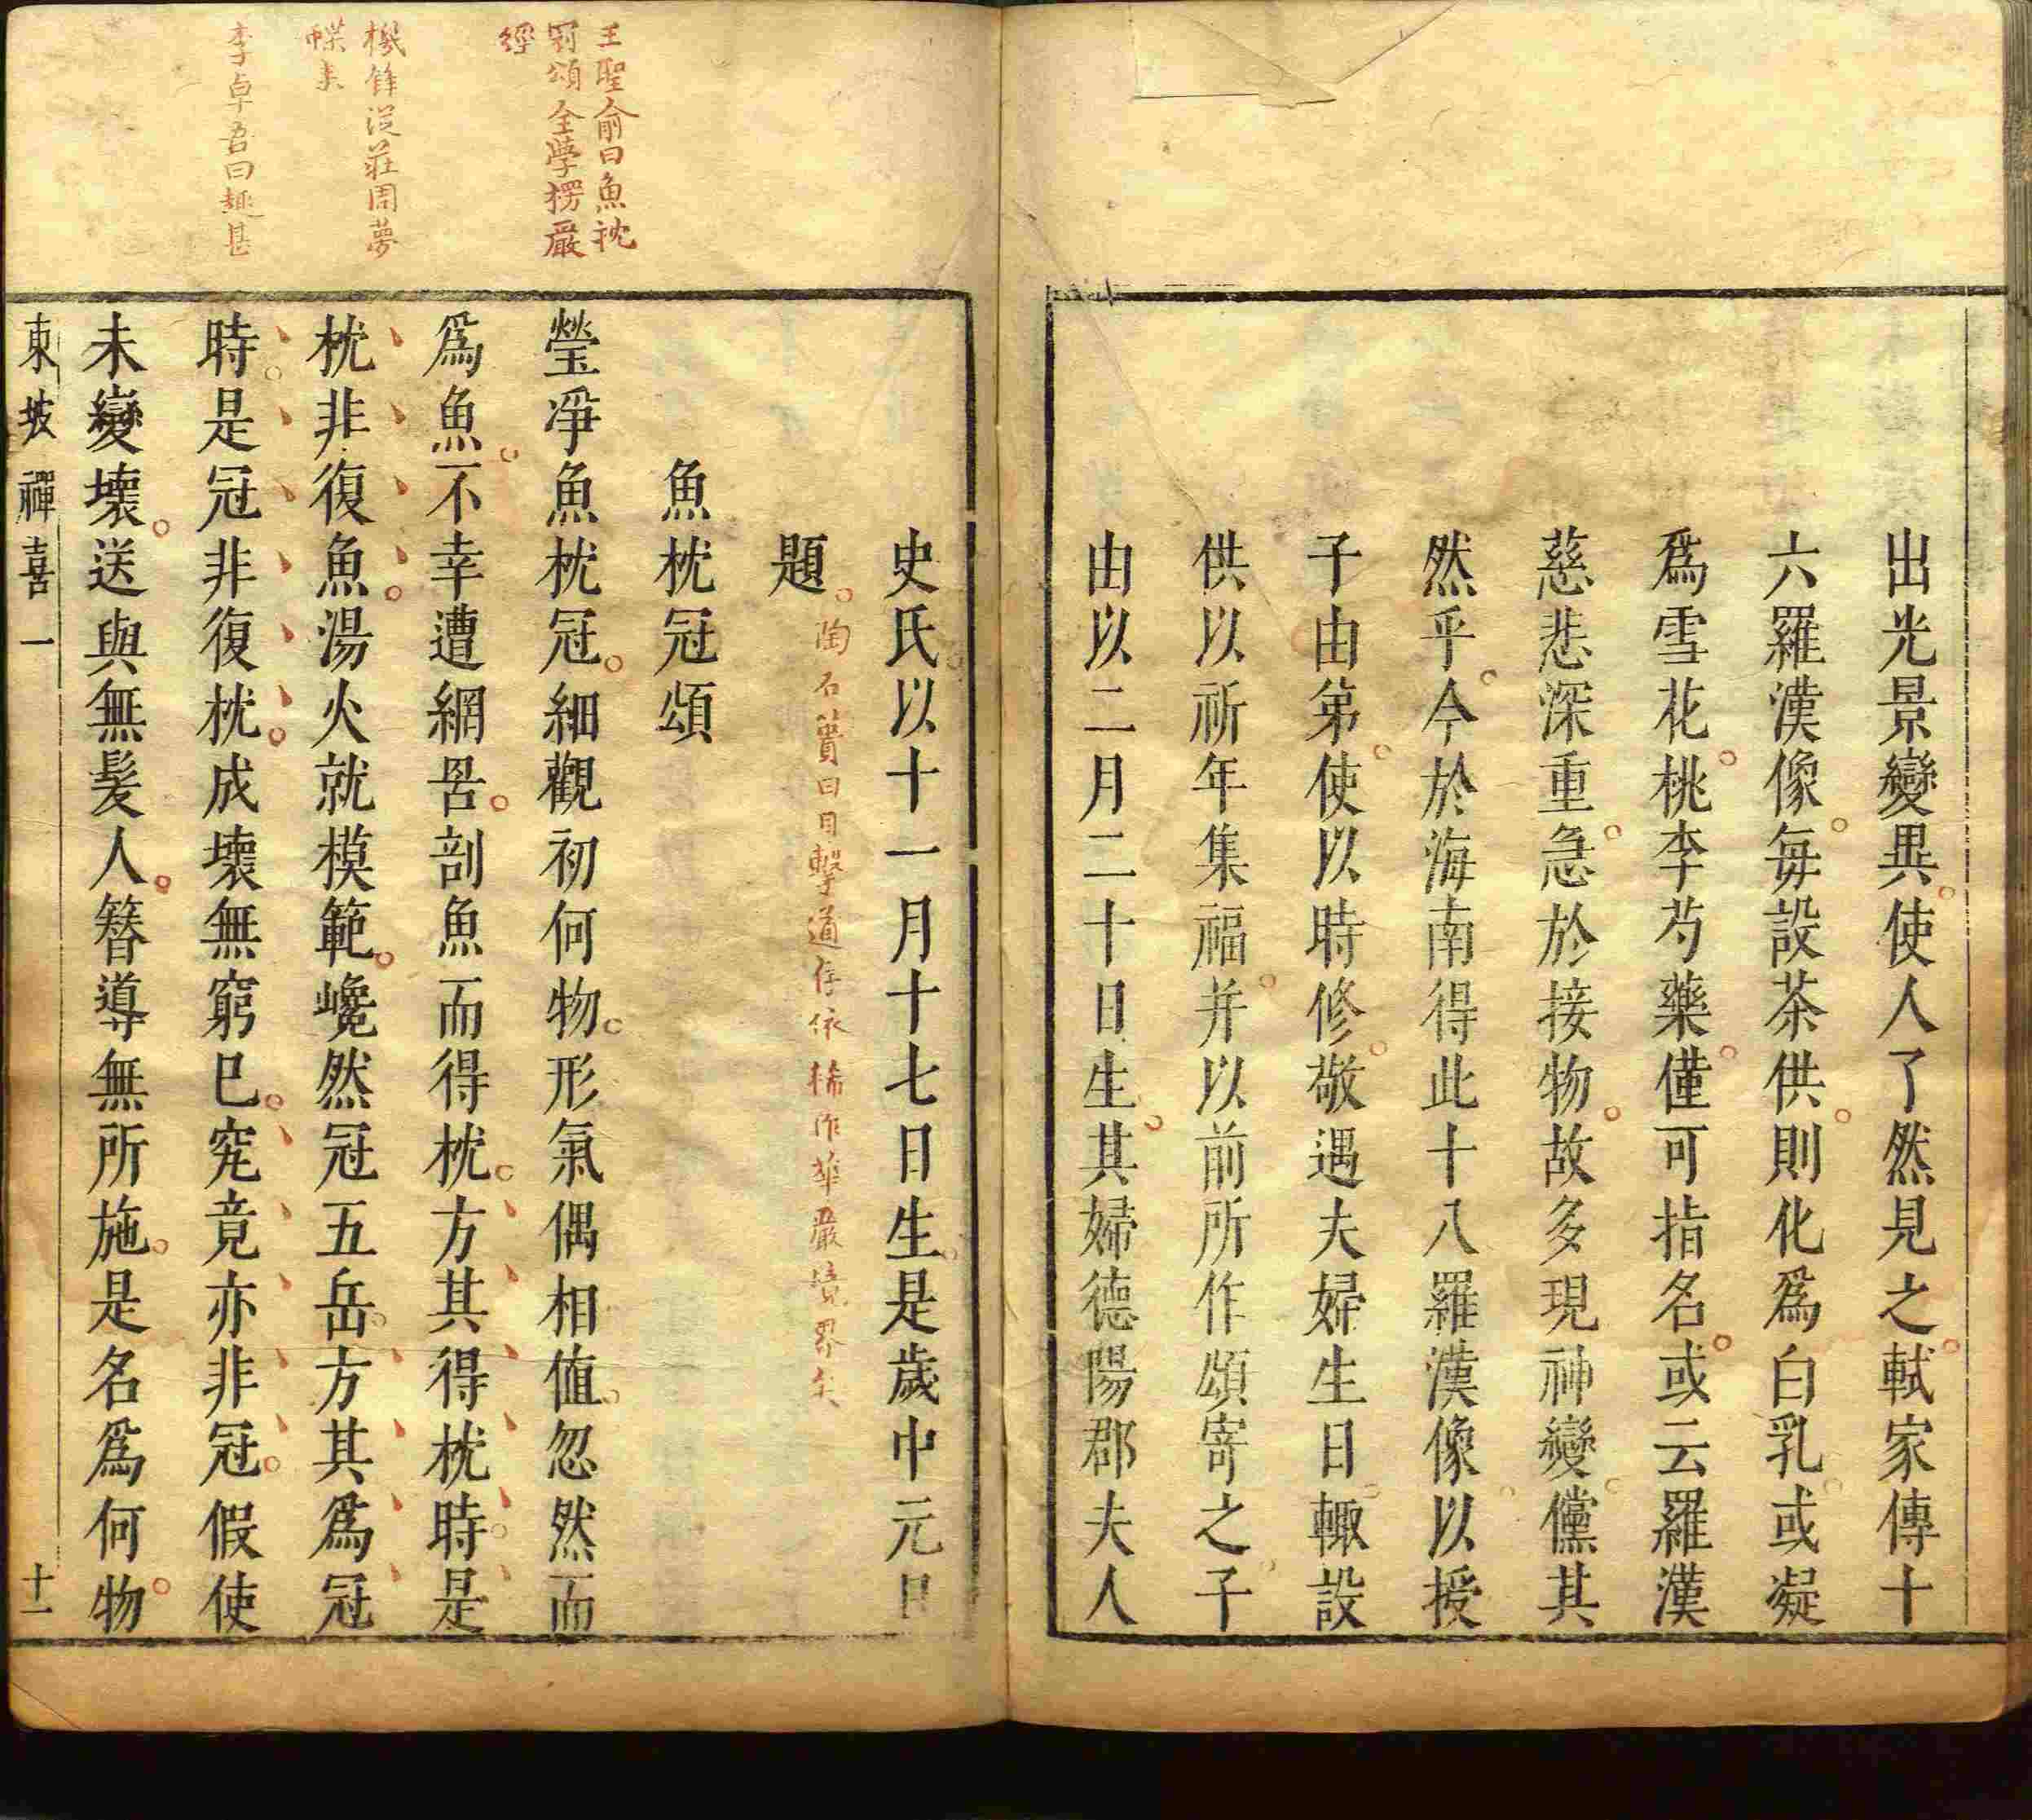 出光景變異使人了然見之軾家傳十
六羅漢像每設茶供則化爲白乳或凝
爲雪花桃李芍藥僅可指名或云羅漢
慈悲深重急於接物故多現神變儻其
然乎今於海南得此十八羅漢像以授
子由弟使以時修敬遇夫婦生日輙設
供以祈年集福并以前所作頌寄之子
由以二月二十日生其婦德陽郡夫人
史氏以十一月十七日生是歲中元日
題
陶石簣曰目擊道存依稀作華嚴境界矣
魚枕冠頌
王聖俞曰魚枕
冠頌全學楞嚴
經
瑩凈魚枕冠細觀初何物形氣偶相値忽然而
爲魚不幸遭網罟剖魚而得枕方其得枕時是
機鋒從莊周夢
蝶來
枕非復魚湯火就模範巉然冠五岳方其爲冠
時是冠非復枕成壞無窮已究竟亦非冠假使
李卓吾曰趣甚
未變壞送與無髪人簪導無所施是名爲何物
東坡禪喜一
十一